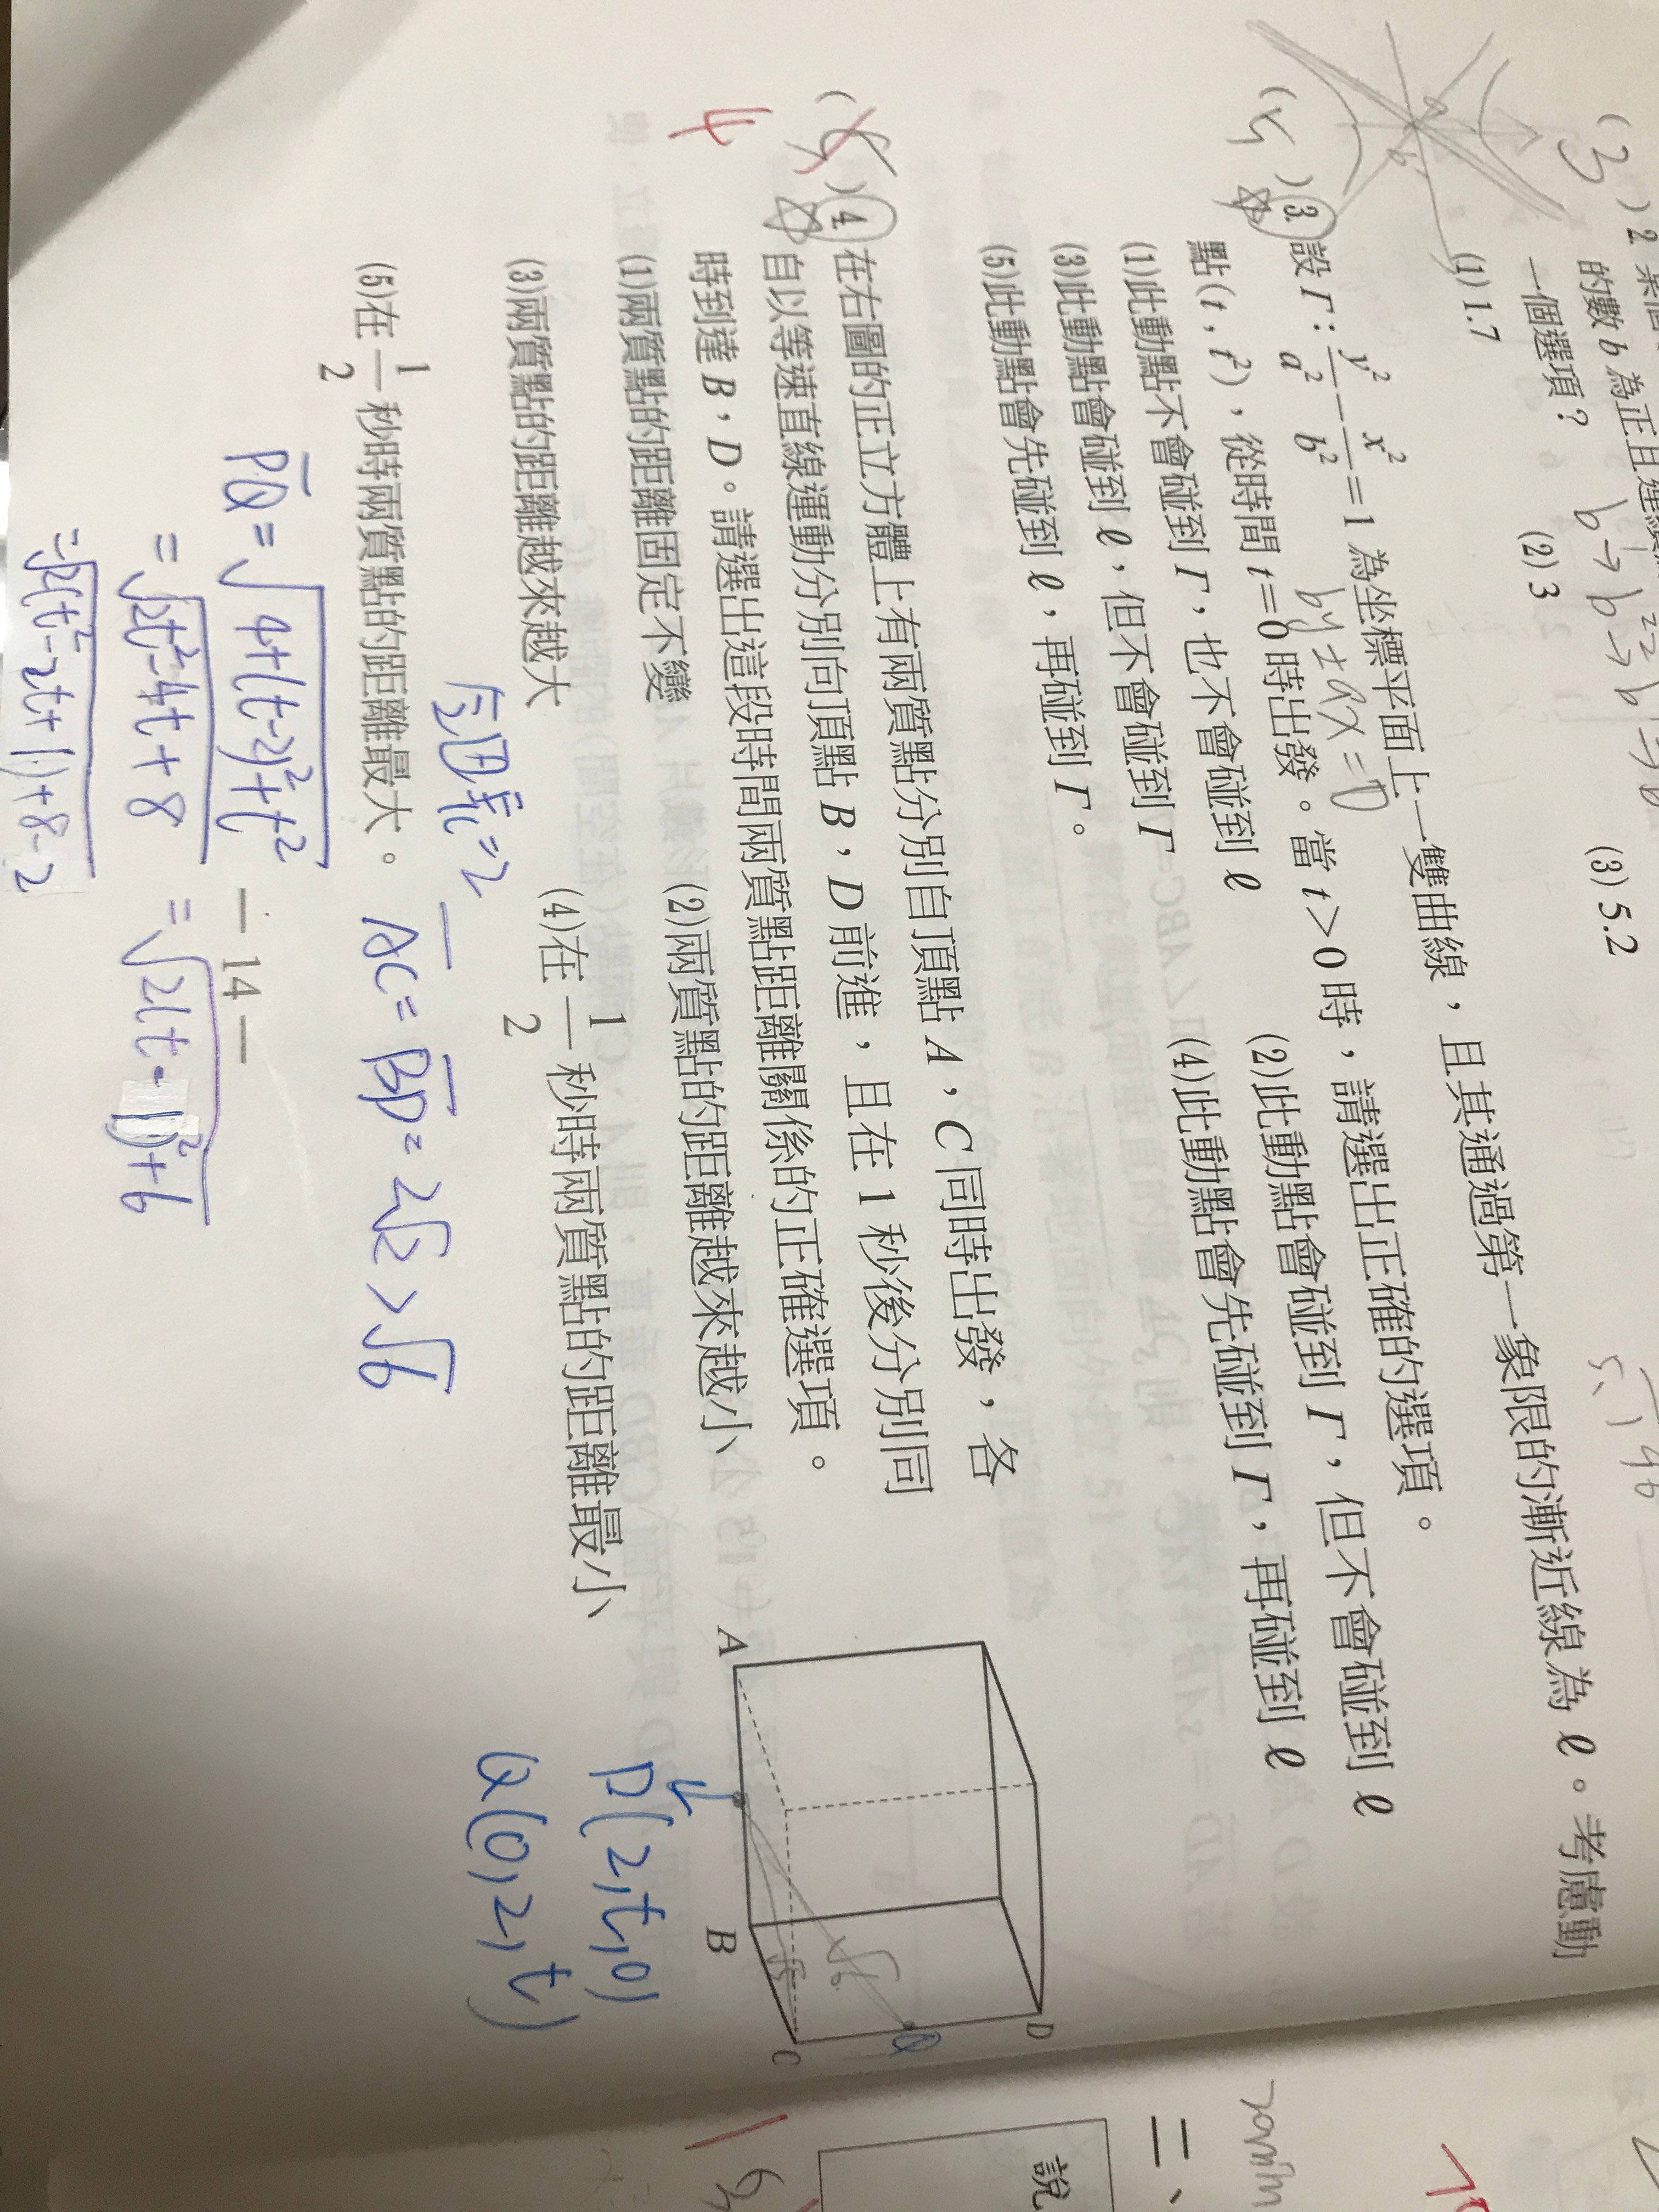 (3) 2
的數 b 為正且
一個選項？ b→b→b
(1) 1.7
(2) 3
(3) 5.2
(5) 3. 設 Γ：y²/a² − x²/b² = 1 為坐標平面上一雙曲線，且其通過第一象限的漸近線為 ℓ。考慮動
by±ax=0
點(t，t²)，從時間 t=0 時出發。當 t>0 時，請選出正確的選項。
(1)此動點不會碰到 Γ，也不會碰到 ℓ
(2)此動點會碰到 Γ，但不會碰到 ℓ
(3)此動點會碰到 ℓ，但不會碰到 Γ
(4)此動點會先碰到 Γ，再碰到 ℓ
(5)此動點會先碰到 ℓ，再碰到 Γ。
4
( ) 4. 在右圖的正立方體上有兩質點分別自頂點 A，C 同時出發，各
自以等速直線運動分別向頂點 B，D 前進，且在 1 秒後分別同
時到達 B，D。請選出這段時間兩質點距離關係的正確選項。
(1)兩質點的距離固定不變
(2)兩質點的距離越來越小
(3)兩質點的距離越來越大
(4)在 1/2 秒時兩質點的距離最小
(5)在 1/2 秒時兩質點的距離最大。
A
B
C
D
Q
√6
P(2,t,0)
Q(0,2,t)
AC = BD = 2√2 > √6
PQ = √4+(t-2)²+t²
= √2t²-4t+8
= √2(t-1)²+6
= √2(t²-2t+1)+8-2
— 14 —
二、
說